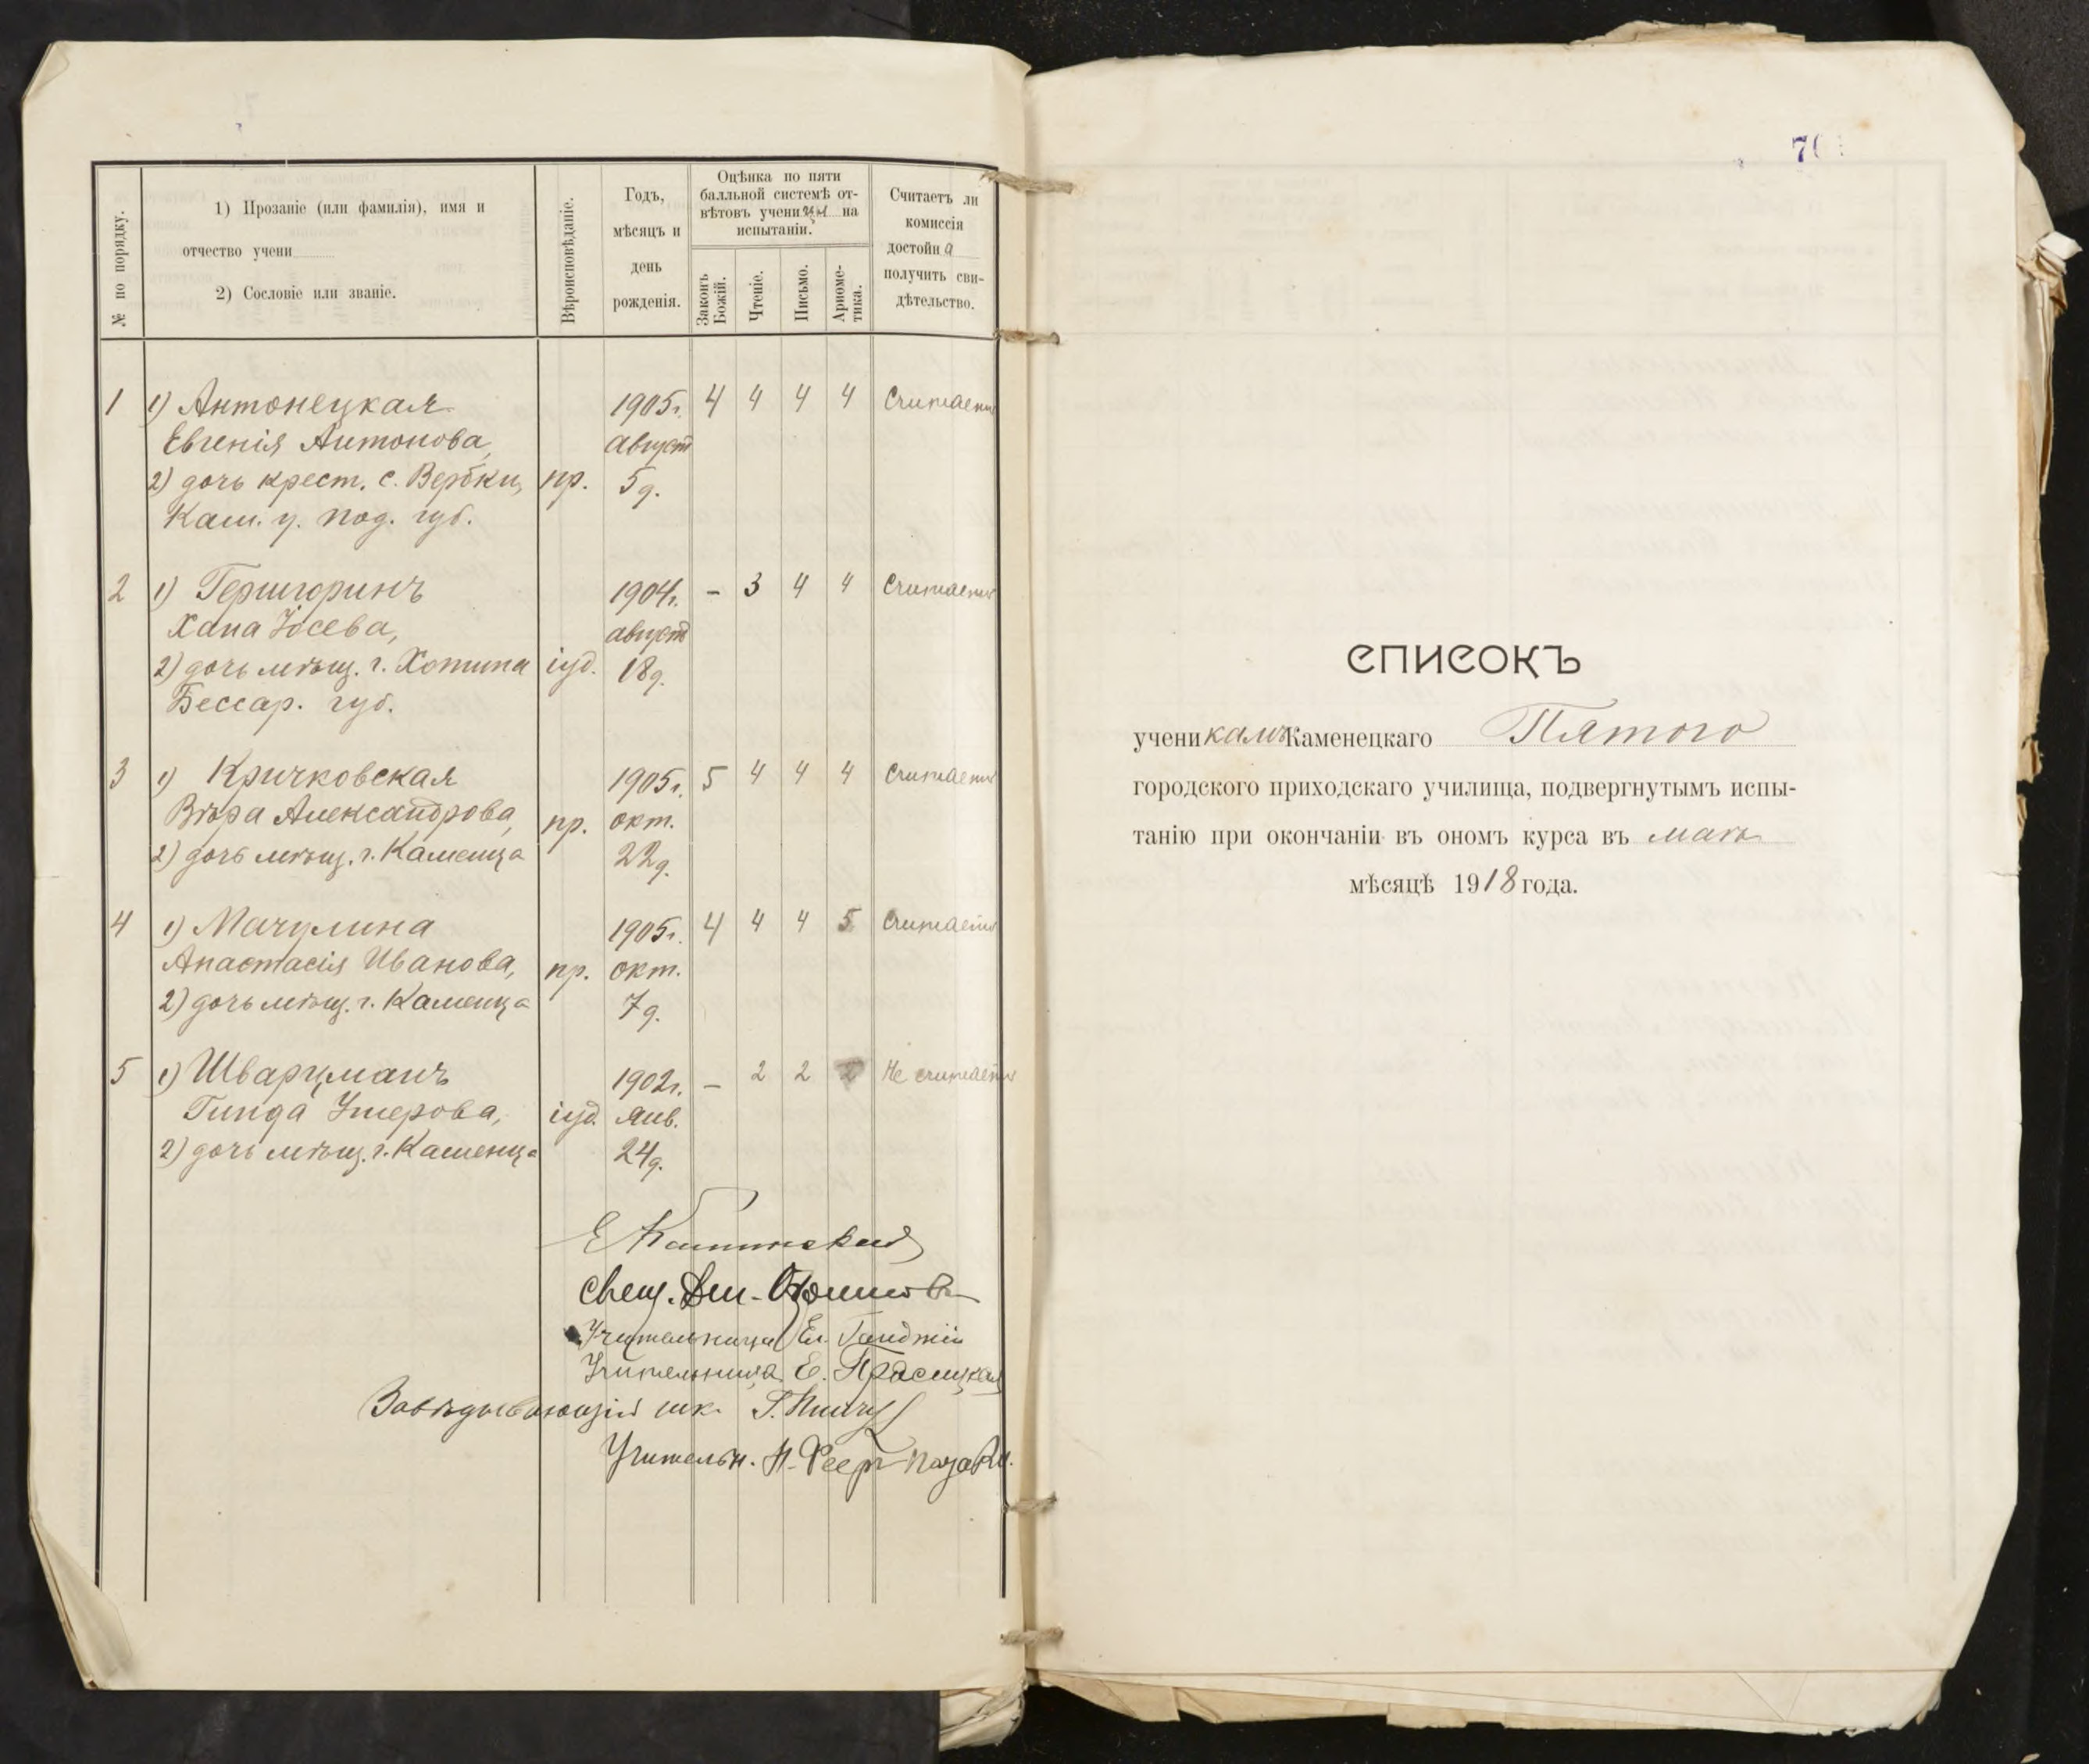 № по порядку.
1) Прозаніе (или фамилія), имя и
отчество учени
2) Сословіе или званіе.
Вѣроисповѣданіе.
Годъ,
мѣсяцъ и
день
рожденія.
Оцѣнка по пяти
балльной системѣ от-
вѣтовъ учениц на
испытаніи.
Законъ
Божій.
Чтеніе.
Письмо.
Ариѳме-
тика.
Считаетъ ли
комиссія
достойн а
получить сви-
дѣтельство.
1 1) Антонецкая 1905г. 4 4 4 4 Считаетъ
Евгенія Антонова, август
2) дочь крест. с. Вербки, пр. 5 д.
Кам. у. Под. губ.
2 1) Гершгоринъ 1904г. – 3 4 4 Считаетъ
Хана Іосева, август
2) дочь мѣщ. г. Хотина іуд. 18 д.
Бессар. губ.
3 1) Кричковская 1905г. 5 4 4 4 Считаетъ
Вѣра Александрова, пр. окт.
2) дочь мѣщ. г. Каменца 22 д.
4 1) Мачулина 1905г. 4 4 4 5 Считаетъ
Анастасія Иванова, пр. окт.
2) дочь мѣщ. г. Каменца 7 д.
5 1) Шварцманъ 1902г. – 2 2 2 Не считаетъ
Гинда Ушерова, іуд. янв.
2) дочь мѣщ. г. Каменца 24 д.
Е
Свящ. Дим.
Учительница Ел.
Учительница Е.
Завѣдывающій шк.
Учительн. Н.
70
СПИСОКЪ
ученикамъ Каменецкаго Пятого
городского приходскаго училища, подвергнутымъ испы-
танію при окончаніи въ ономъ курса въ маѣ
мѣсяцѣ 1918 года.